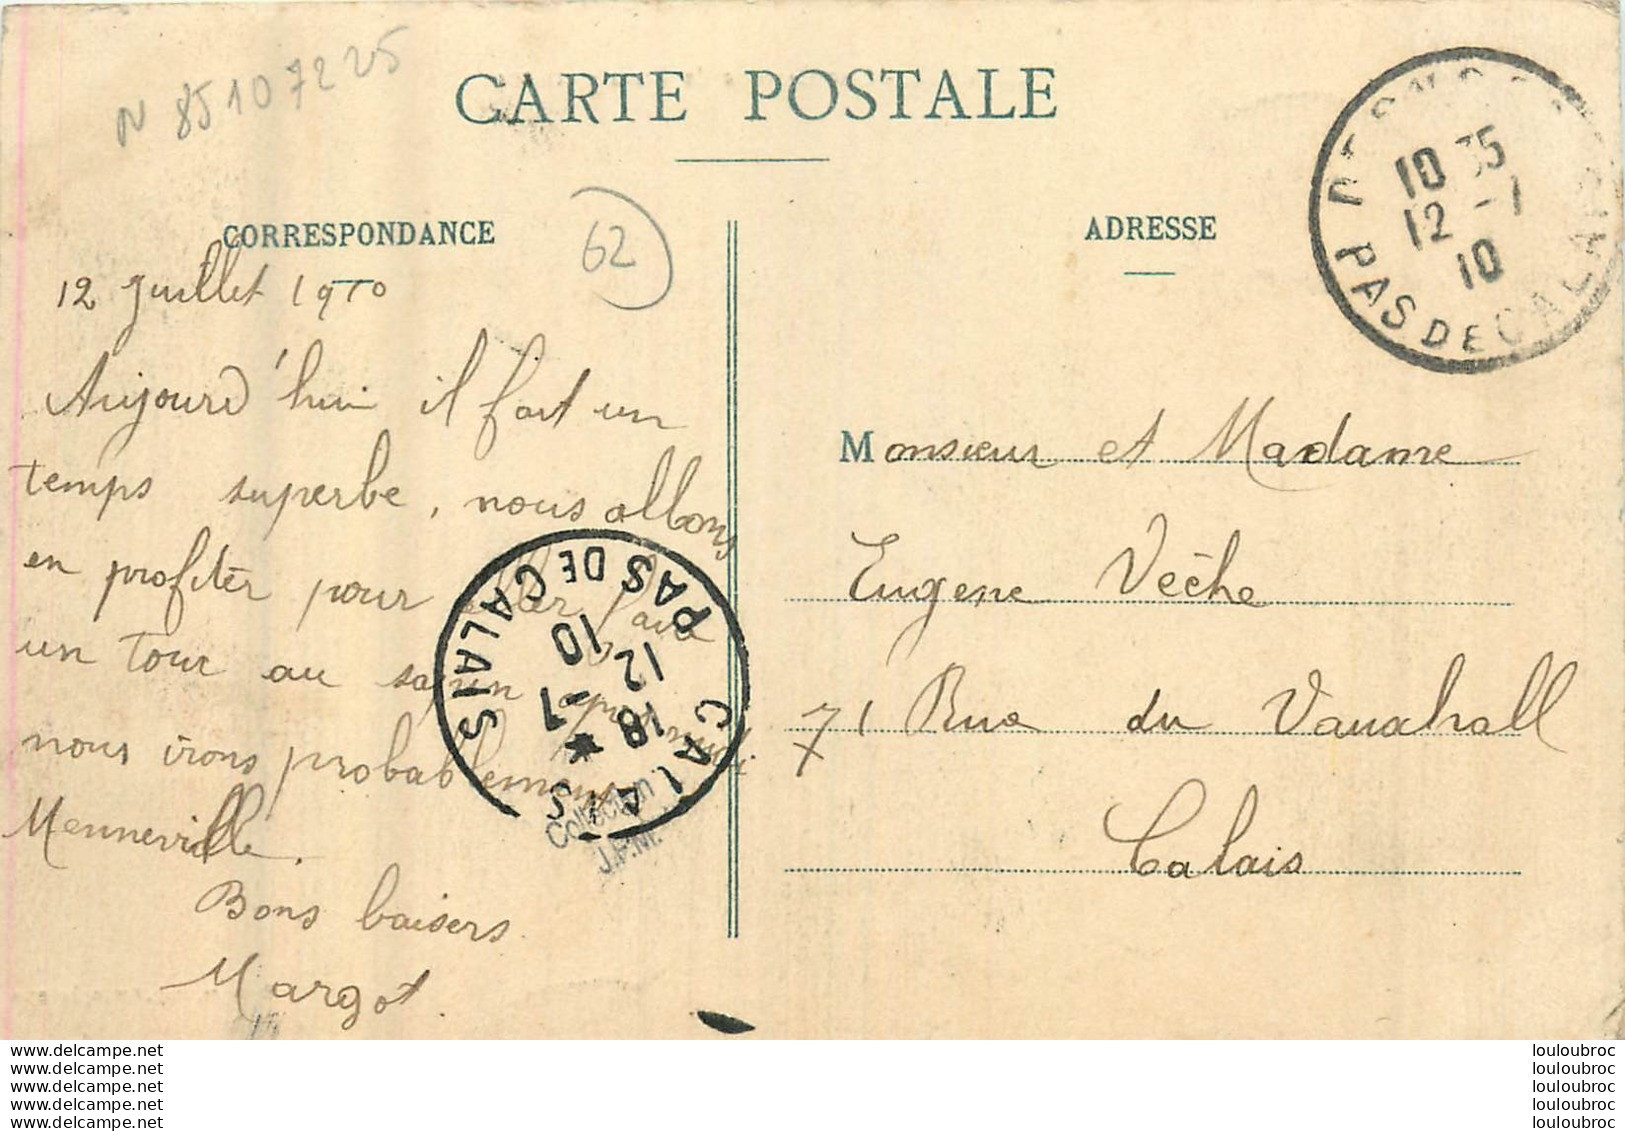 N 85107225
CARTE POSTALE
CORRESPONDANCE
62
ADRESSE
10 35
12 -1
10
PAS DE CALAIS
12 Juillet 1910
Aujourd'hui il fait un
temps superbe, nous allons
en profiter pour aller faire
un tour au sapin après midi
nous irons probablement
Menneville.
Bons baisers
Margot.
CALAIS
PAS DE CALAIS
18 *
12 -1
10
Collection
J.P.M.
Monsieur et Madame
Eugene Vèche
71 Rue du Vauxhall
Calais
www.delcampe.net
www.delcampe.net
www.delcampe.net
www.delcampe.net
www.delcampe.net
louloubroc
louloubroc
louloubroc
louloubroc
louloubroc